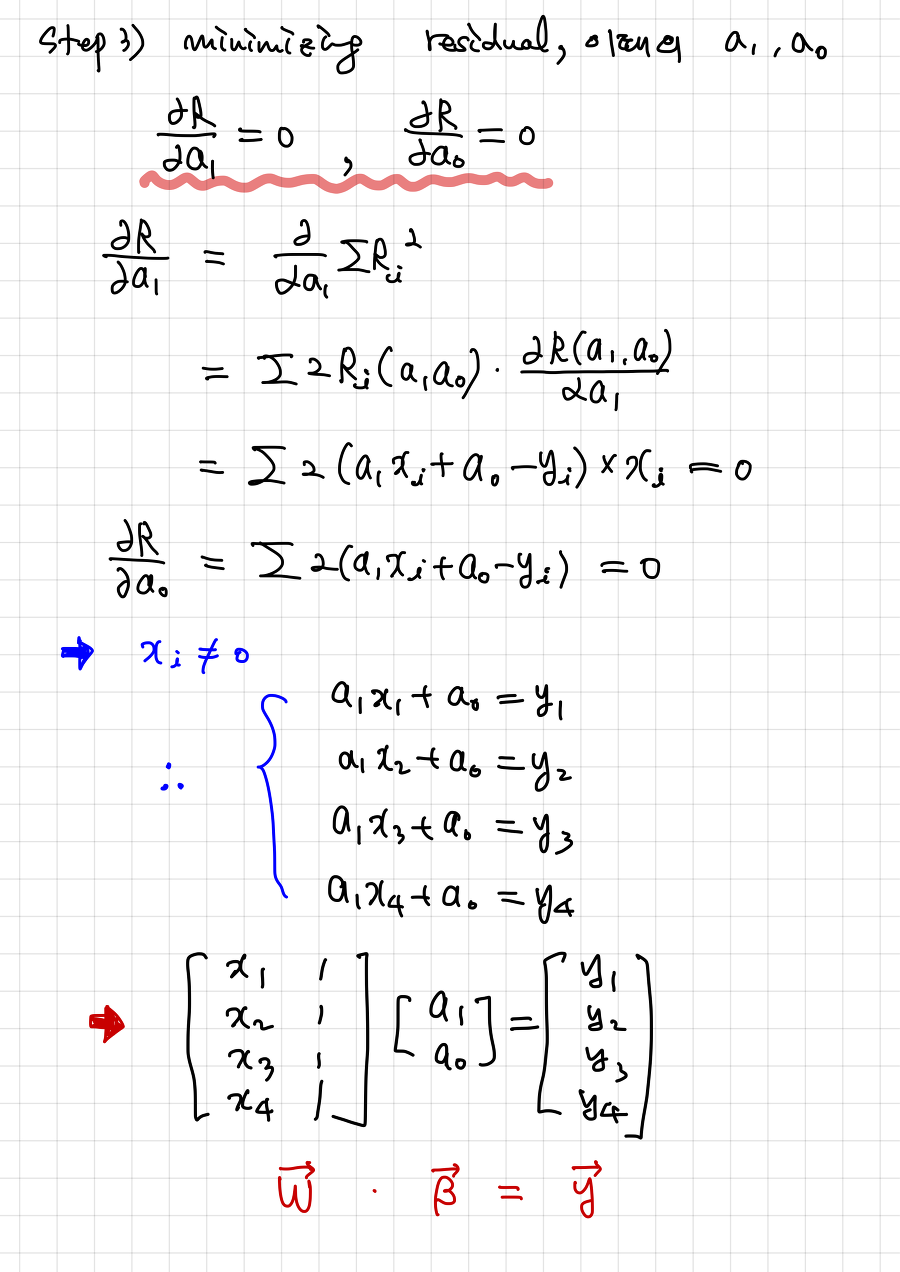 Step 3) minimizing residual, a₁, a₀
∂R/∂a₁ = 0 , ∂R/∂a₀ = 0
∂R/∂a₁ = ∂/∂a₁ ΣRᵢ²
= Σ 2Rᵢ(a₁a₀) · ∂R(a₁,a₀)/∂a₁
= Σ 2 (a₁xᵢ + a₀ - yᵢ) × xᵢ = 0
∂R/∂a₀ = Σ 2(a₁xᵢ + a₀ - yᵢ) = 0
➡ xᵢ ≠ 0
a₁x₁ + a₀ = y₁
∴ { a₁x₂ + a₀ = y₂
a₁x₃ + a₀ = y₃
a₁x₄ + a₀ = y₄
➡ [x₁ 1; x₂ 1; x₃ 1; x₄ 1] [a₁; a₀] = [y₁; y₂; y₃; y₄]
W⃗ · β⃗ = y⃗